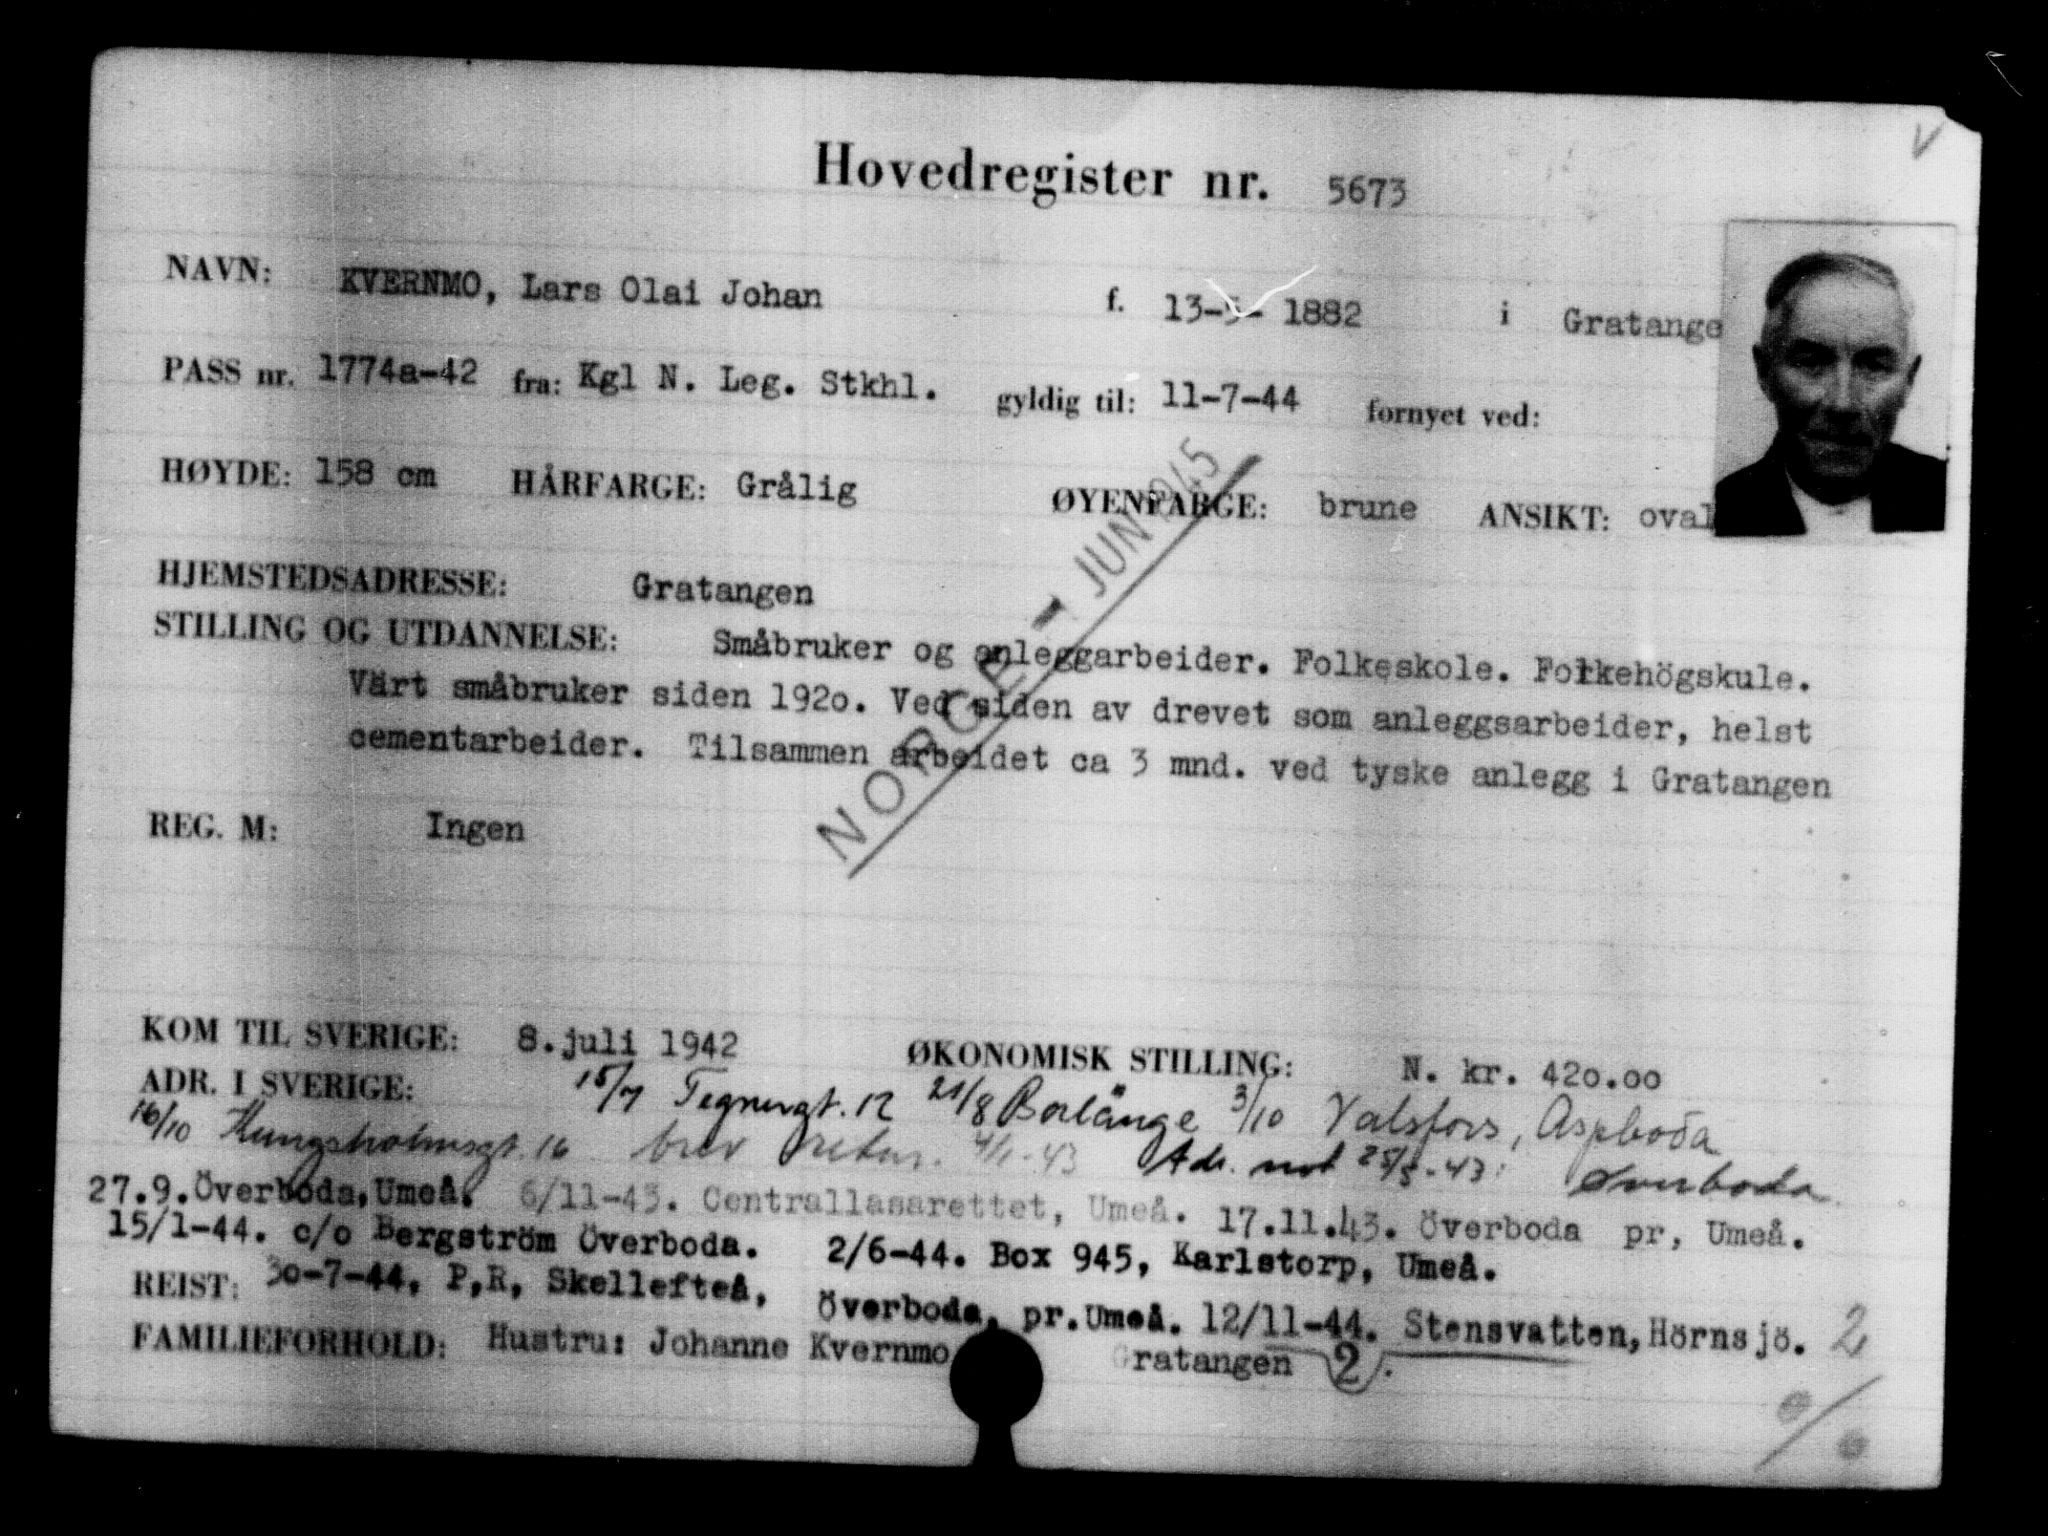 Hovedregister nr. 5673
NAVN: KVERNMO, Lars Olai Johan f. 13-5- 1882 i Gratange
PASS nr. 1774a-42 fra: Kgl N. Leg. Stkhl. gyldig til: 11-7-44 fornyet ved:
HØYDE: 158 cm HÅRFARGE: Grålig ØYENFARGE: brune ANSIKT: oval
NORGE - JUN 1945
HJEMSTEDSADRESSE: Gratangen
STILLING OG UTDANNELSE: Småbruker og anleggarbeider. Folkeskole. Folkehögskule.
Vært småbruker siden 1920. Ved siden av drevet som anleggsarbeider, helst
cementarbeider. Tilsammen arbeidet ca 3 mnd. ved tyske anlegg i Gratangen
REG. M: Ingen
KOM TIL SVERIGE: 8.juli 1942 ØKONOMISK STILLING: N. kr. 420.00
ADR. I SVERIGE: 15/7 Tegnergt. 12 21/8 Borlänge 3/10 Valsfors, Aspboda
16/10 Kungsholmsgt. 16 brev retur. 4/1-43 Adr. mot 25/5-43: Överboda
27.9.Överboda,Umeå. 6/11-43. Centrallasarettet, Umeå. 17.11.43. Överboda pr, Umeå.
15/1-44. c/o Bergström Överboda. 2/6-44. Box 945, Karlstorp, Umeå.
REIST: 30-7-44, P,R, Skellefteå, Överboda, pr.Umeå. 12/11-44. Stensvatten,Hörnsjö. 2
FAMILIEFORHOLD: Hustru: Johanne Kvernmo Gratangen 2.